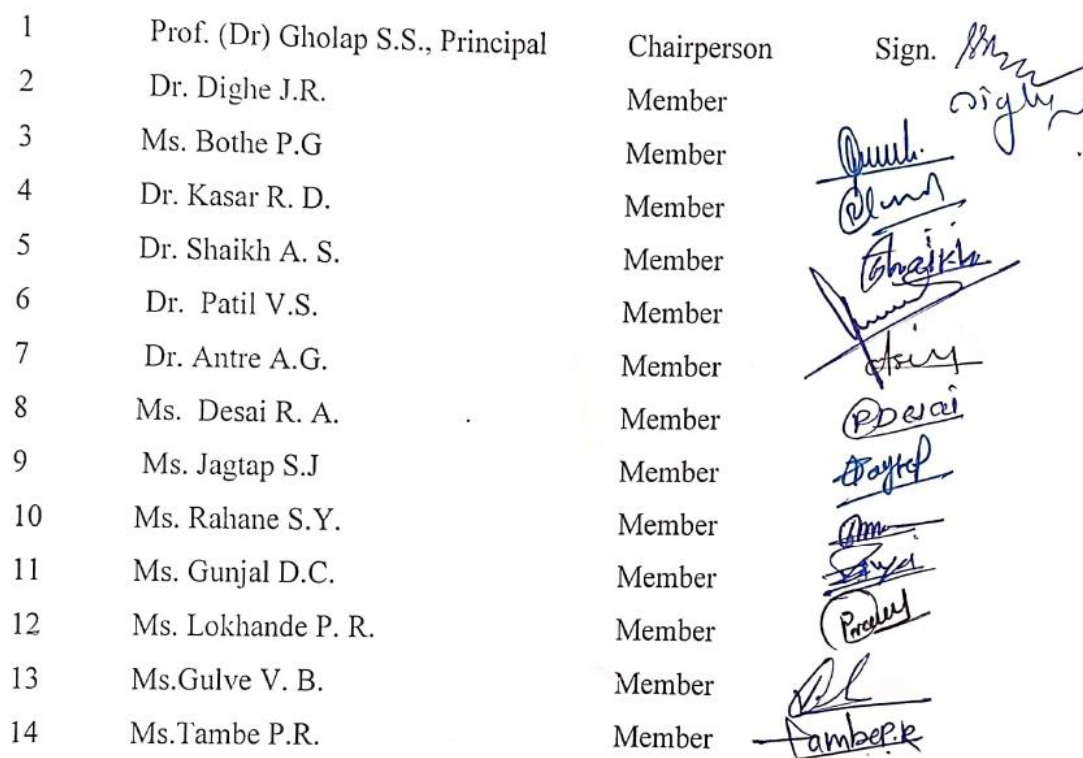 1 Prof. (Dr) Gholap S.S., Principal Chairperson Sign.
2 Dr. Dighe J.R. Member
3 Ms. Bothe P.G Member
4 Dr. Kasar R. D. Member
5 Dr. Shaikh A. S. Member Shaikh
6 Dr. Patil V.S. Member
7 Dr. Antre A.G. Member
8 Ms. Desai R. A. Member RDesai
9 Ms. Jagtap S.J Member Jagtap
10 Ms. Rahane S.Y. Member
11 Ms. Gunjal D.C. Member
12 Ms. Lokhande P. R. Member
13 Ms.Gulve V. B. Member
14 Ms.Tambe P.R. Member TambeP.R